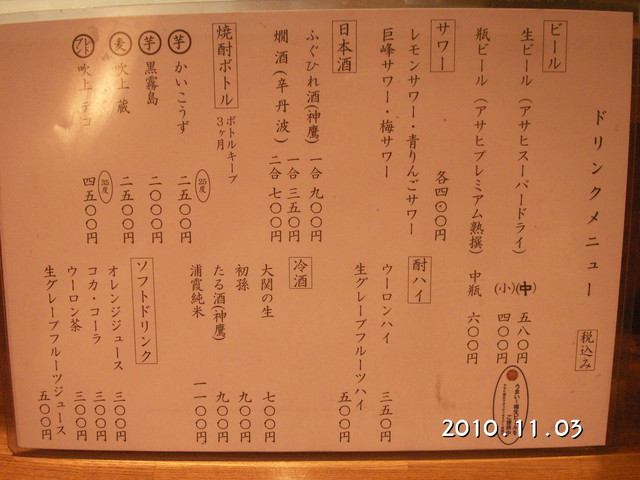 ドリンクメニュー
税込み
ビール
生ビール(アサヒスーパードライ)
(中)五八〇円
(小)四〇〇円
瓶ビール(アサヒプレミアム熟撰)中瓶 六〇〇円
サワー
レモンサワー・青りんごサワー
巨峰サワー・梅サワー
各四〇〇円
酎ハイ
ウーロンハイ 三五〇円
生グレープフルーツハイ 五〇〇円
日本酒
ふぐひれ酒(神鷹) 一合 九〇〇円
燗酒(辛丹波) 一合 三五〇円
二合 七〇〇円
冷酒
大関の生 七〇〇円
初孫 九〇〇円
たる酒(神鷹) 九〇〇円
浦霞純米 一一〇〇円
焼酎ボトル
ボトルキープ
3ヶ月
芋 かいこうず 25度 二五〇〇円
芋 黒霧島 二〇〇〇円
麦 吹上蔵 二五〇〇円
吹上 35度 四五〇〇円
ソフトドリンク
オレンジジュース 三〇〇円
コカ・コーラ 三〇〇円
ウーロン茶 三〇〇円
生グレープフルーツジュース 五〇〇円
2010.11.03